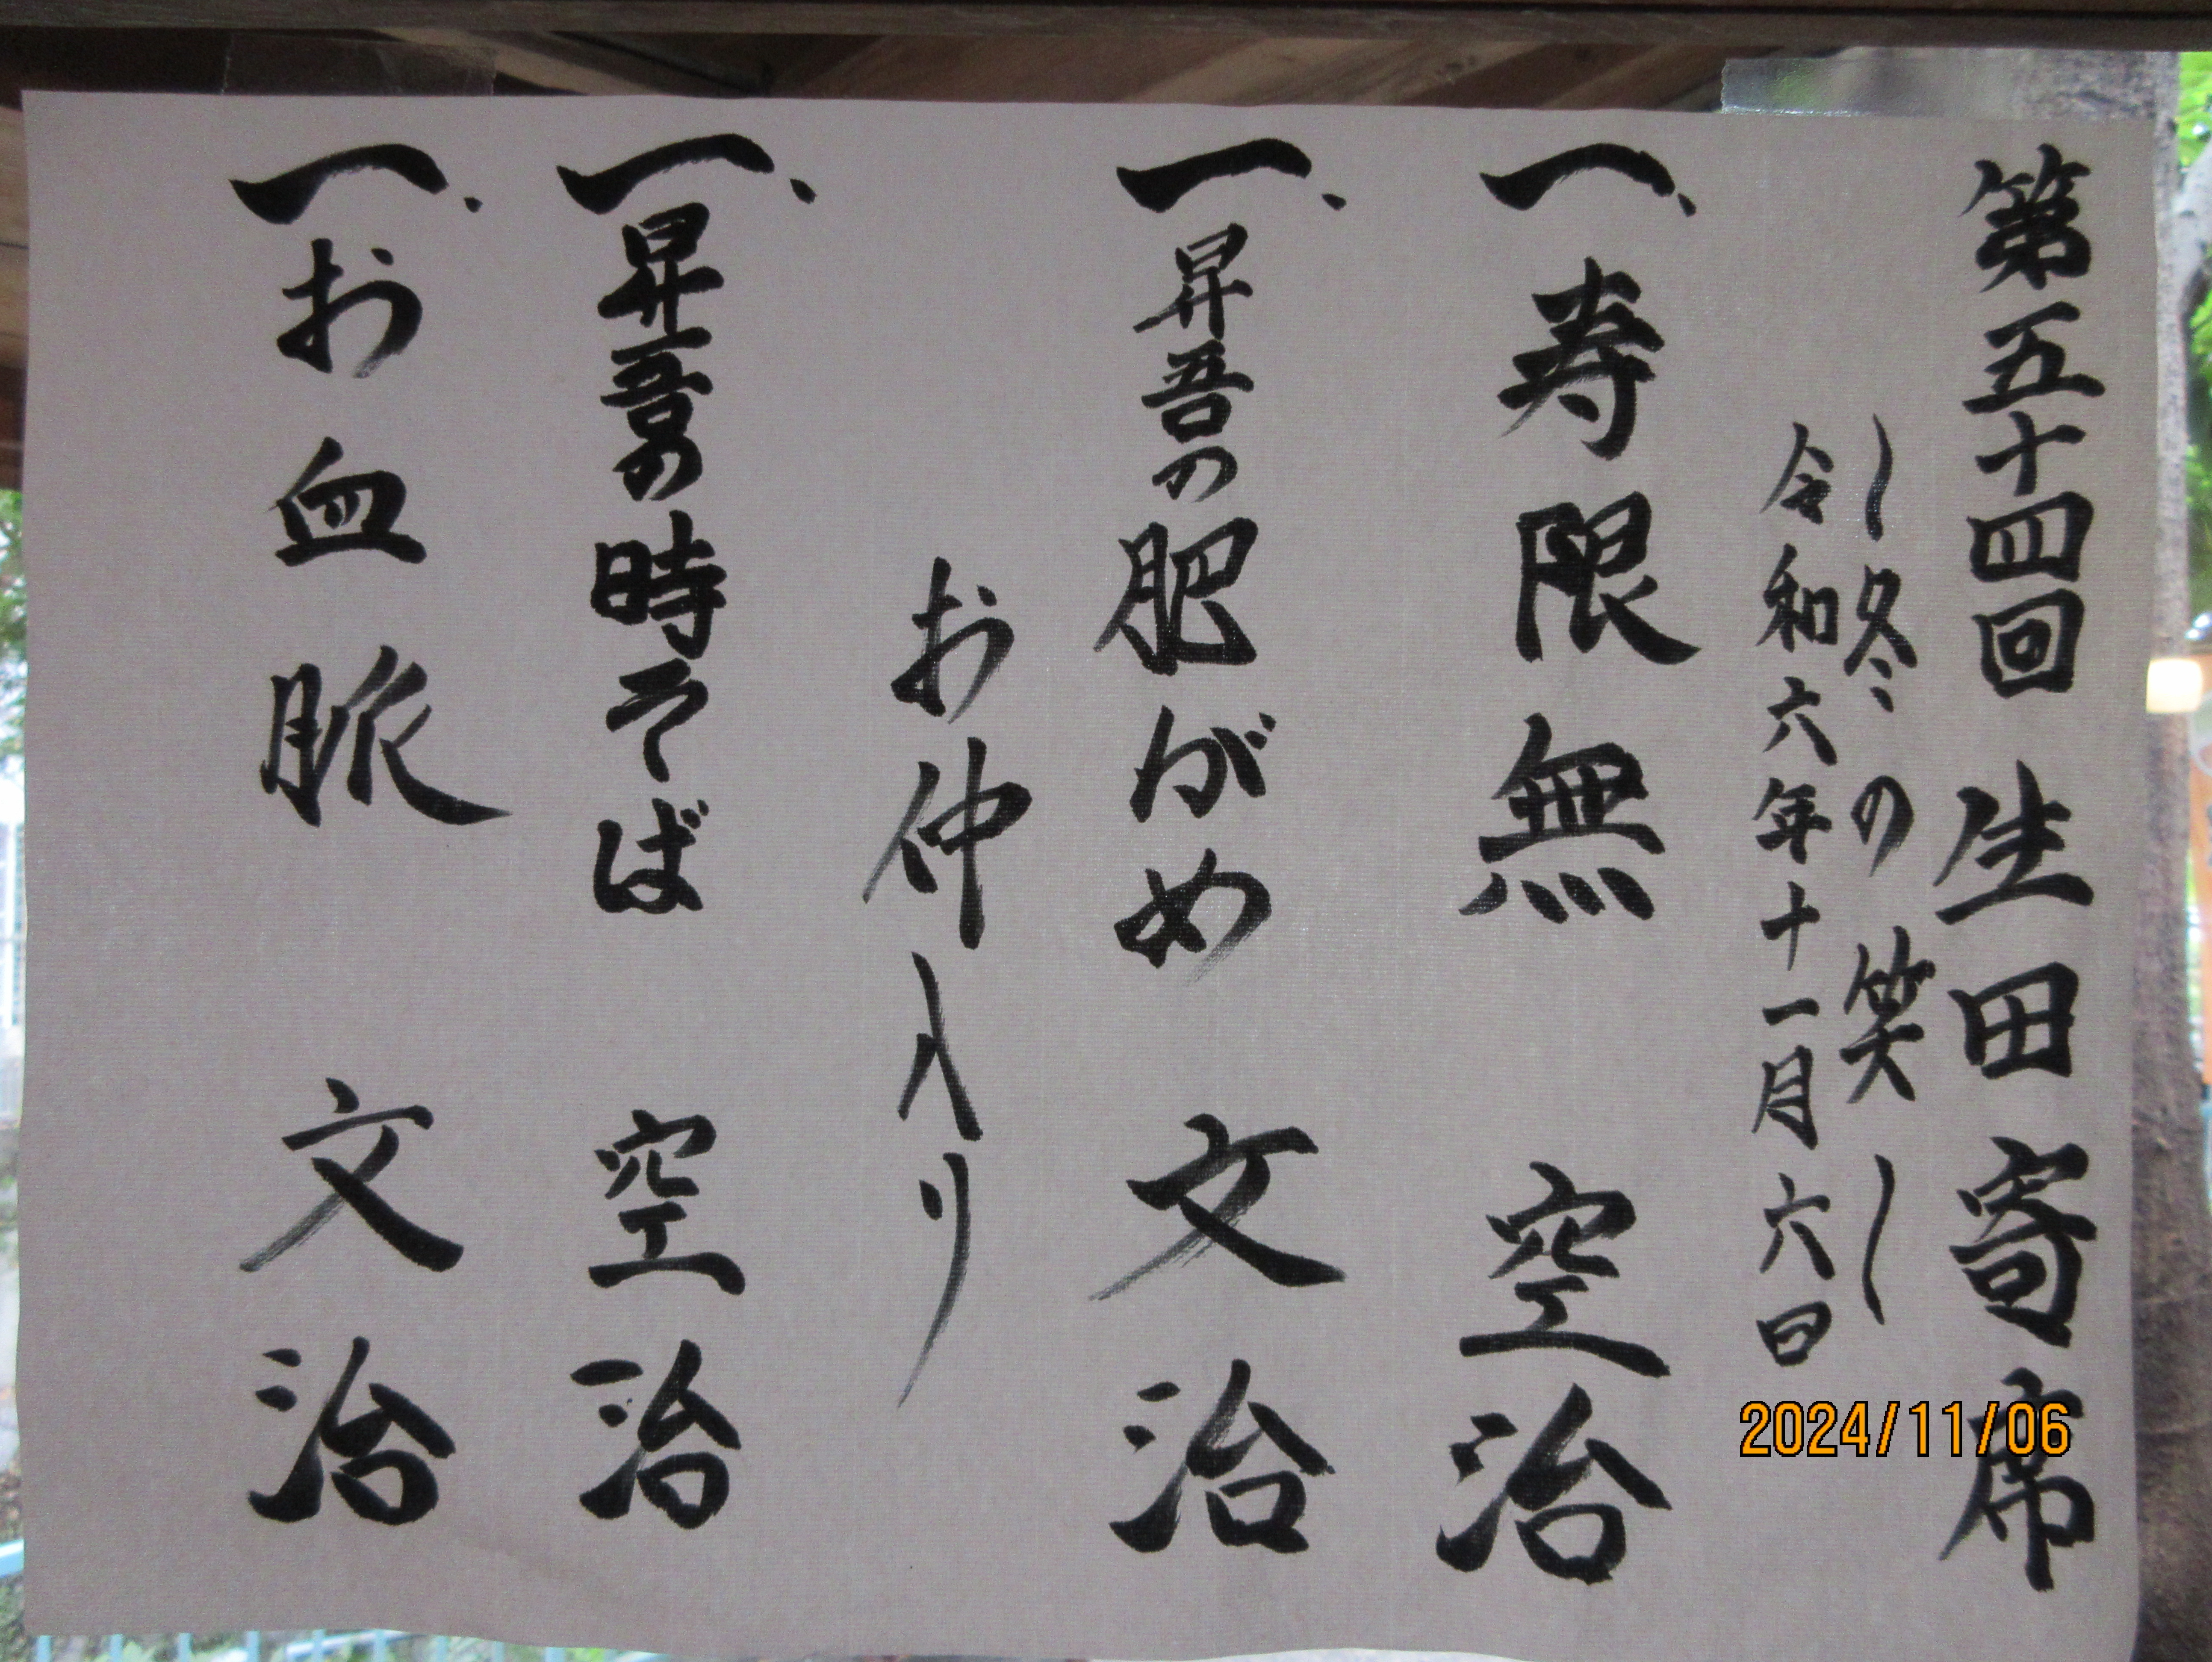 第五十四回 生田寄席
〜冬の笑〜
令和六年十一月六日
一、寿限無 空治
一、昇吾の肥がめ 文治
お仲入り
一、昇吾の時そば 空治
一、お血脈 文治
2024/11/06